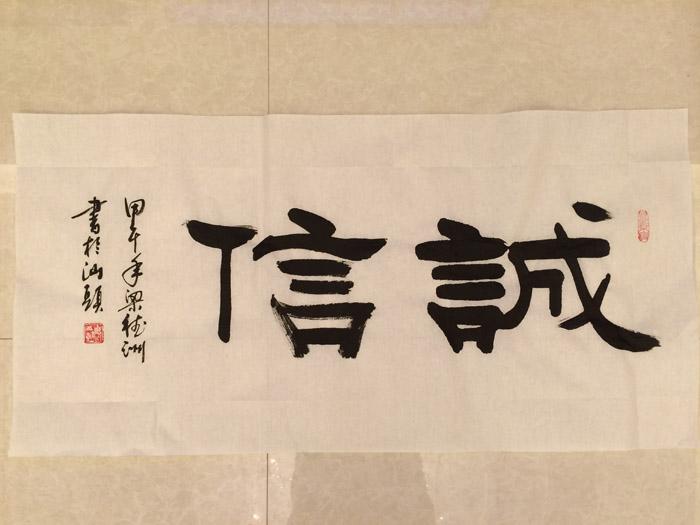 誠信
甲午年梁德洲
書於汕頭